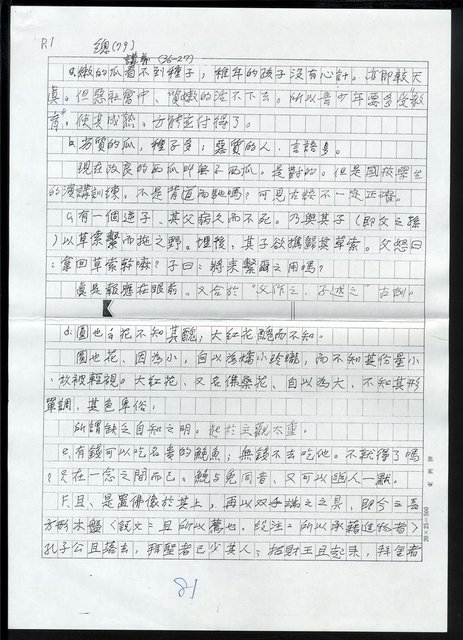 P.1 總(79)
講義(36-27)
a.嫩的瓜看不到種子;稚年的孩子沒有心計。亦即較天
真。但惡社會中、質嫩的活不下去。所以青少年要多受教
育,使其成熟、方能並付得了。
b.劣質的瓜,種子多;惡質的人、言語多。
現在改良的西瓜即無子西瓜,是對的。但是國校學生
的演講訓練。不是背道而馳嗎?可見古諺不一定正確。
c.有一個逆子、其父病久而不死。乃與其子(即父之孫
)以草索繫而拖之野。埋後,其子欲攜歸其草索。父怒曰
:拿回草索幹嘛?子曰:將來繫爾之用嗎?
真是報應在眼前。又合於“父作之,子述之”古訓。
d.圓也花不知其醜;大紅花醜而不知。
圓也花、因為小,自以為嬌小玲瓏,而不知其份量小
、故被輕視。大紅花、又名佛桑花、自以為大、不知其形
單調,其色卑俗;
所謂缺乏自知之明。起於主觀太重。
e.有錢可以吃名貴的鮑魚;無錢不去吃他。不就得了嗎
?只在一念之間而已。鮑與免同音、又可以幽人一默。
f.且、是置佛像於其上,再以双手端之之具,即今之長
方形木盤〈說文:且所以薦也。段注:所以承藉進物者〉
孔子公且落去,拜聖者已少其人;招財王且起來,拜金者
81